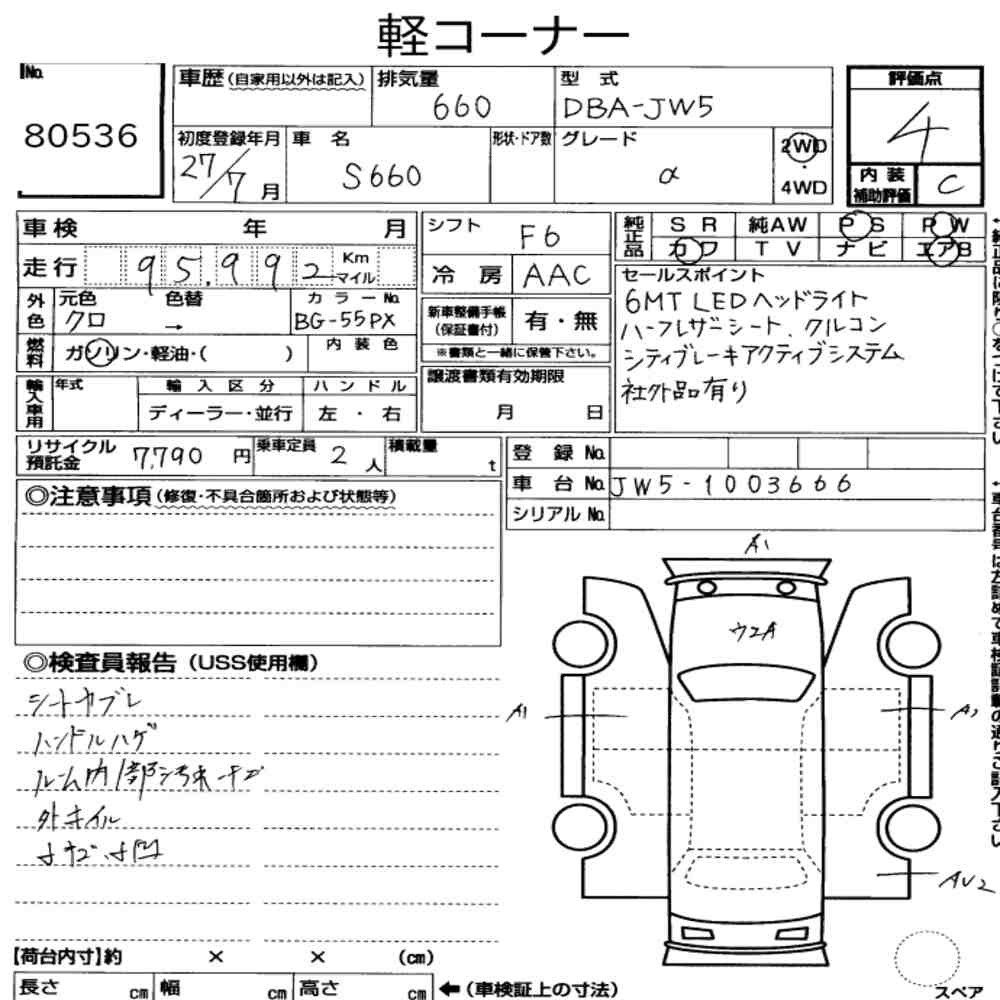 軽コーナー
No.
80536
車歴(自家用以外は記入)
排気量
660
型 式
DBA-JW5
評価点
4
初度登録年月
27/7月
車 名
S660
形状・ドア数
グレード
α
2WD
・
4WD
内装補助評価
C
車検 年 月
シフト
F6
純正品
SR 純AW PS PW
カワ TV ナビ エアB
走行
95,992
Km
マイル
冷 房
AAC
セールスポイント
6MT LEDヘッドライト
ハーフレザーシート、クルコン
シティブレーキアクティブシステム
社外品有り
外色
元色 色替
クロ →
カラーNo.
BG-55PX
新車整備手帳
(保証書付)
有・無
※書類と一緒に保管下さい。
燃料
ガソリン・軽油・( )
内 装 色
譲渡書類有効期限
月 日
輸入車用
年式
輸 入 区 分
ハ ン ド ル
ディーラー・並行
左 ・ 右
リサイクル預託金
7,790円
乗車定員
2人
積載量
t
登 録 No.
車 台 No.
JW5-1003666
シリアル No.
◎注意事項(修復・不具合箇所および状態等)
◎検査員報告(USS使用欄)
シートヤブレ
ハンドルハゲ
ルーム内1部汚れ・キズ
外ホイル
A1
ウエA
A1
AU2
【荷台内寸】約 × × (cm)
長さ cm 幅 cm 高さ cm
←(車検証上の寸法)
スペア